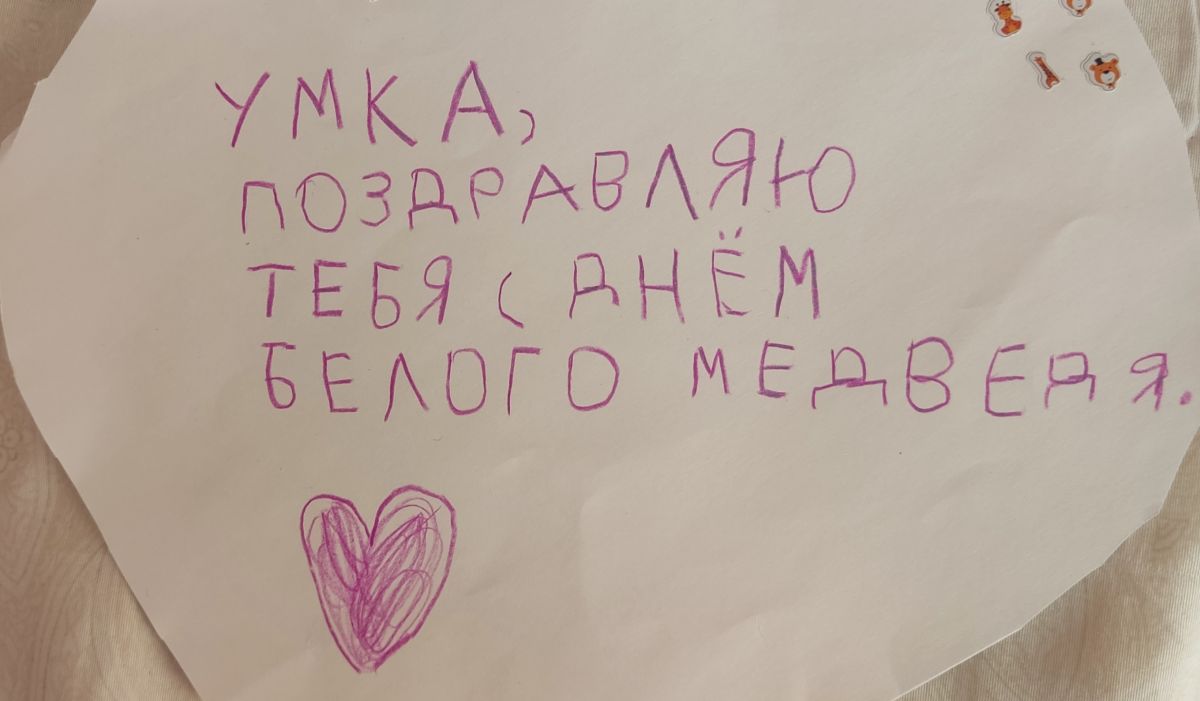 УМКА,
ПОЗДРАВЛЯЮ
ТЕБЯ С ДНЁМ
БЕЛОГО МЕДВЕДЯ.